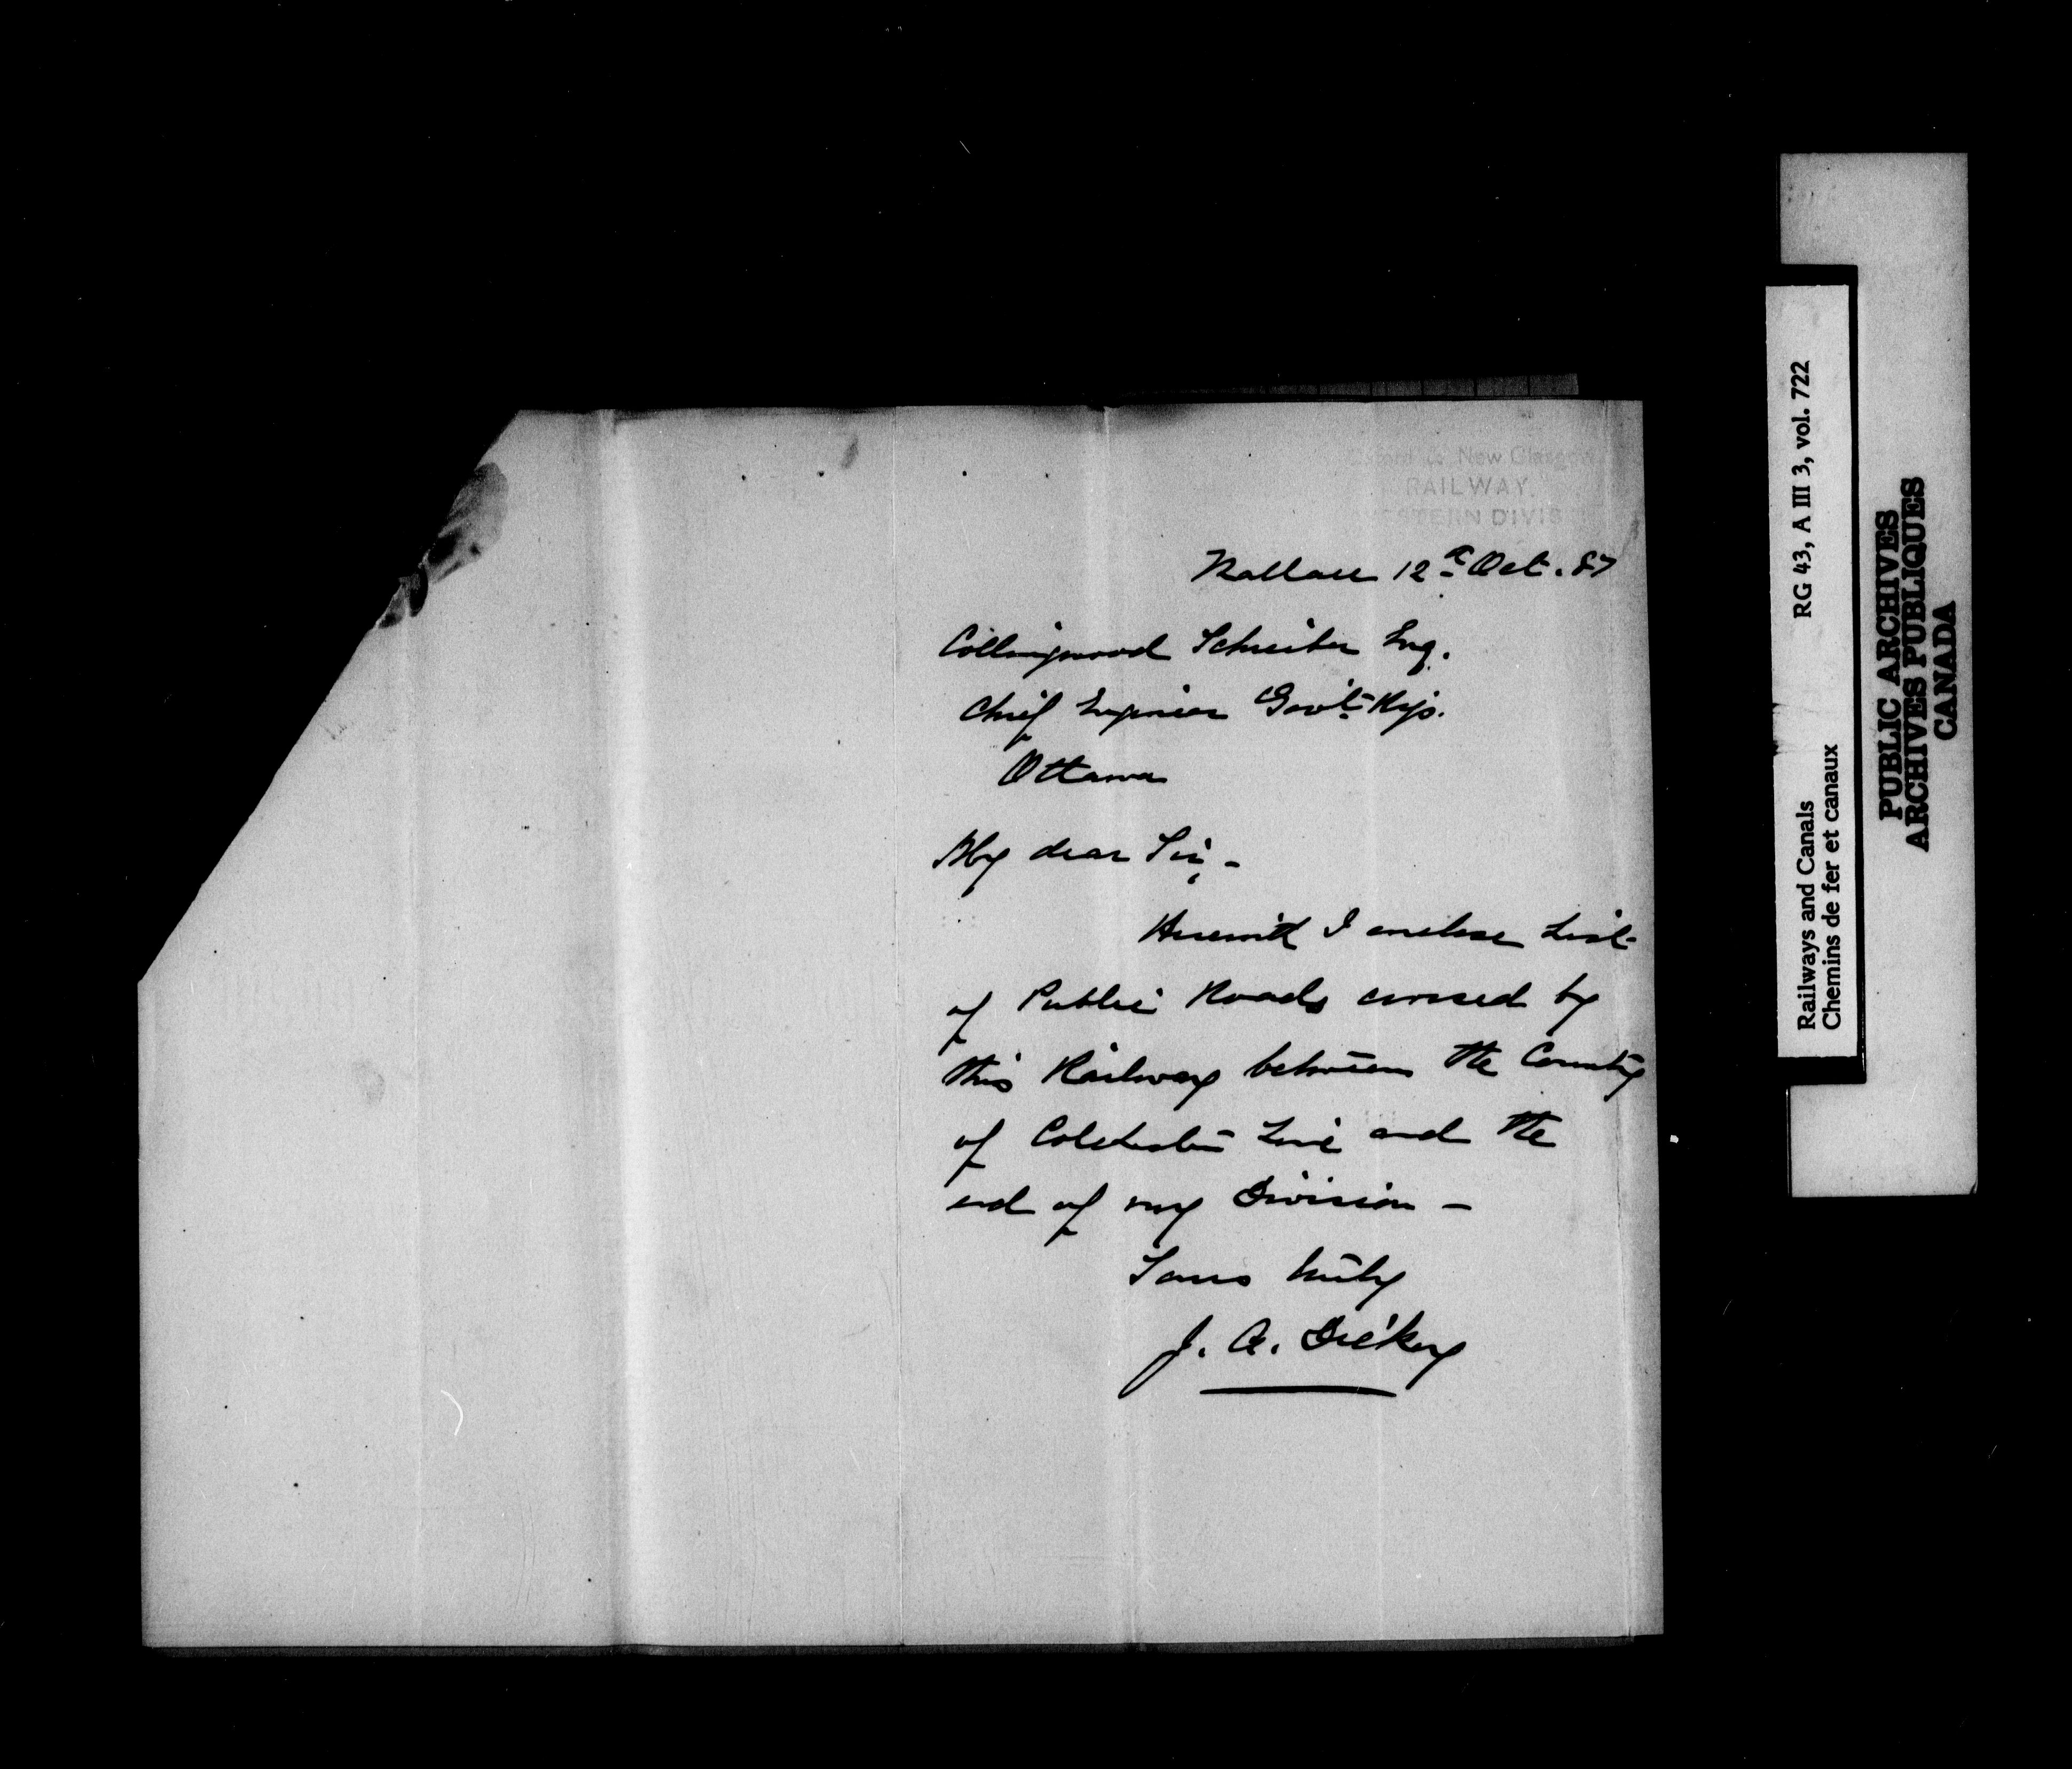 & New Glasgow
RAILWAY.
WESTERN DIVIS
Wallace 12th Oct. 87
Collingwood Schreiber Esq.
Chief Engineer Govt. Rys.
Ottawa
My dear Sir, -
Herewith I enclose List
of Public Roads crossed by
this Railway between the County
of Colchester Line and the
end of my Division -
Yours truly
J. A. Dickey
Railways and Canals RG 43, A III 3, vol. 722
Chemins de fer et canaux
PUBLIC ARCHIVES
ARCHIVES PUBLIQUES
CANADA